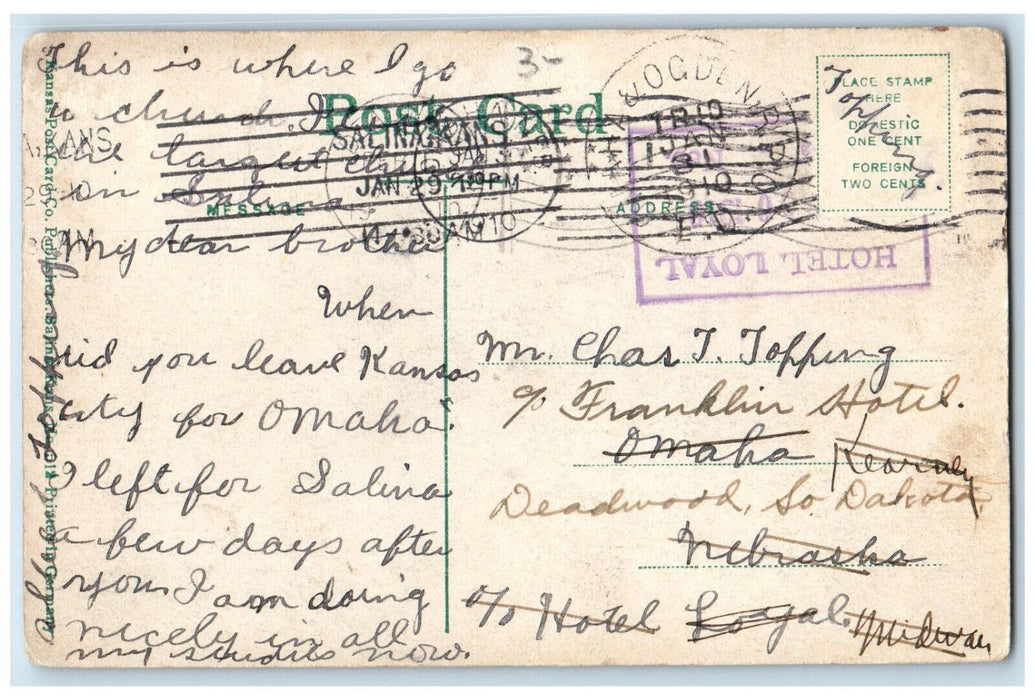 This is where I go
to church. It
the largest
in Salina
My dear brother
When
did you leave Kansas
City for Omaha.
I left for Salina
a few days after
you. I am doing
nicely in all
my studies now.
3-
Post Card
MESSAGE
ADDRESS
SALINA, KANS
JAN 29
PM
AM
1910
OGDEN
TR 19
JAN
31
1910
R.P.O.
PLACE STAMP
HERE
DOMESTIC
ONE CENT
FOREIGN
TWO CENTS
HOTEL LOYAL
Mr. Chas T. Topping
c/o Franklin Hotel.
Omaha Kearney
Deadwood, So Dakota,
Nebraska
c/o Hotel Loyal. Midway
Kansas Post Card Co.